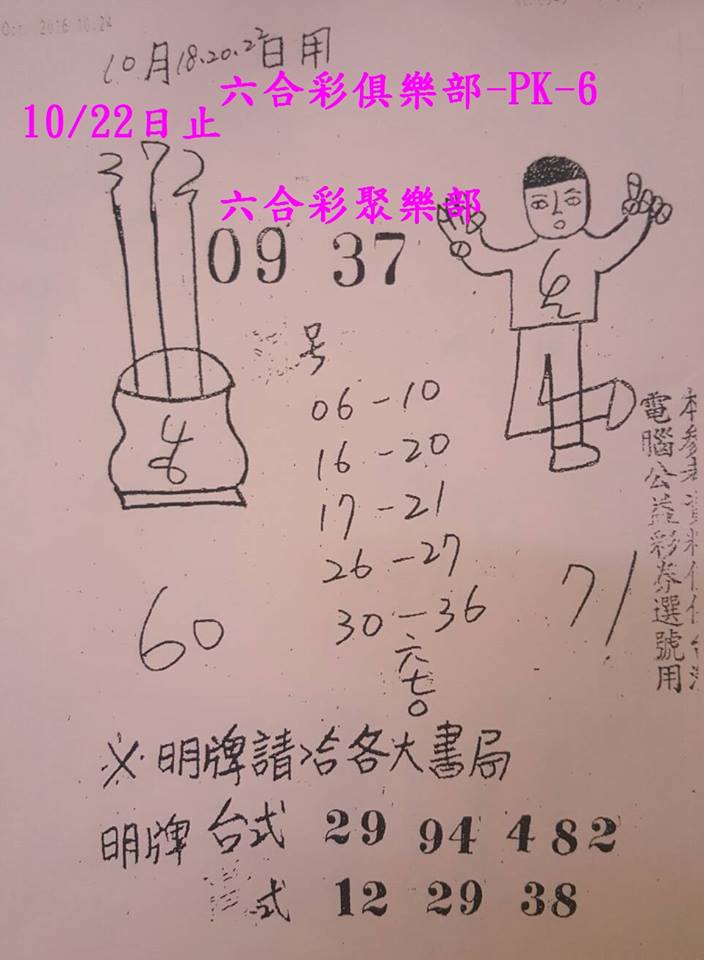 2016 10.24
10月18.20.22日用
六合彩俱樂部-PK-6
10/22日止
372
六合彩聚樂部
09 37
号
06-10
16-20
17-21
26-27
30-36
60
71
六七0
電腦公益彩券選號用
※明牌請洽各大書局
明牌 台式 29 94 482
式 12 29 38